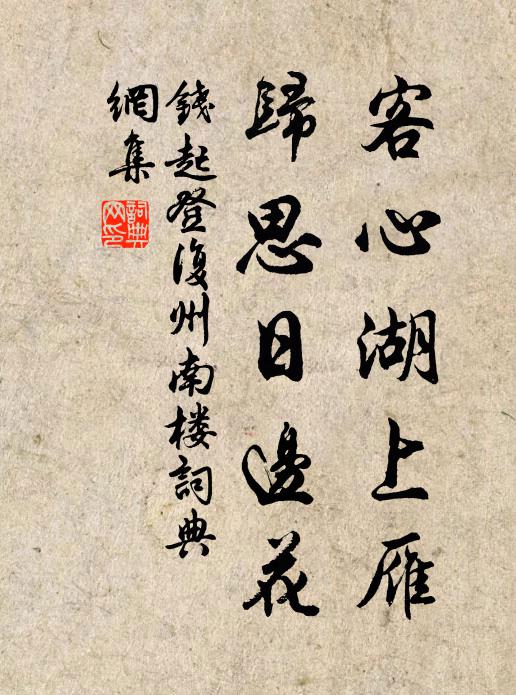 客心湖上雁
歸思日邊花
錢起登復州南楼詞典
網集
詞典
网印